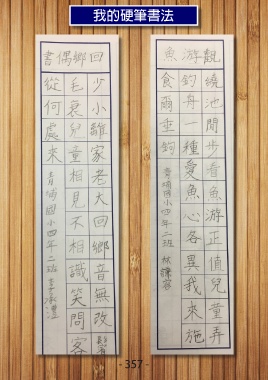 我的硬筆書法
觀游魚
繞池閒步看魚游正值兒童弄
釣舟一種愛魚心各異我來施
食爾垂鉤 青埔國小四年二班 林
回鄉偶書
少小離家老大回鄉音無改鬢
毛衰兒童相見不相識笑問客
從何處來 青埔國小四年二班 李
- 357 -